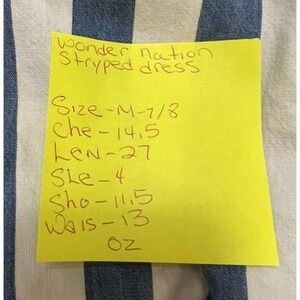 Wonder Nation
Stryped dress
Size-M-7/8
Che-14.5
Len-27
Sle-4
Sho-11.5
Wais-13
oz